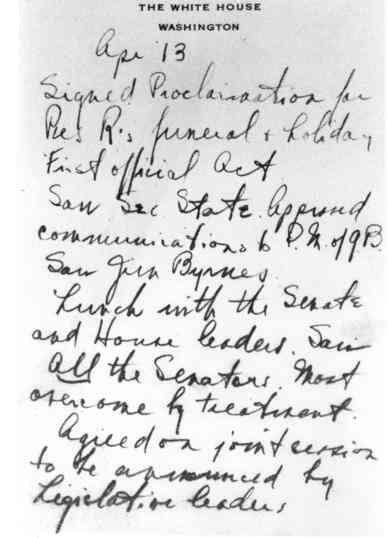 THE WHITE HOUSE
WASHINGTON
Apr 13
Signed Proclamation for
Pres R's funeral & holiday
First official act
Saw Sec State. Approved
communications to P.M. of G.B.
Saw Jim Byrnes.
Lunch with the Senate
and House leaders. Saw
All the Senators. Most
overcome by treatment.
Agreed on joint session
to be announced by
Legislative leaders